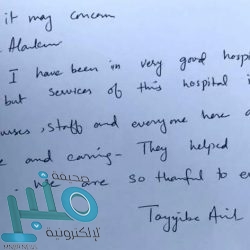 it may concern
I have been in very good hospi
but services of this hospital i
urses, staff and everyone here a
e and caring - They helped
We are so thankful to e
صحيفة
منبر
الإلكترونية
Tayyiba